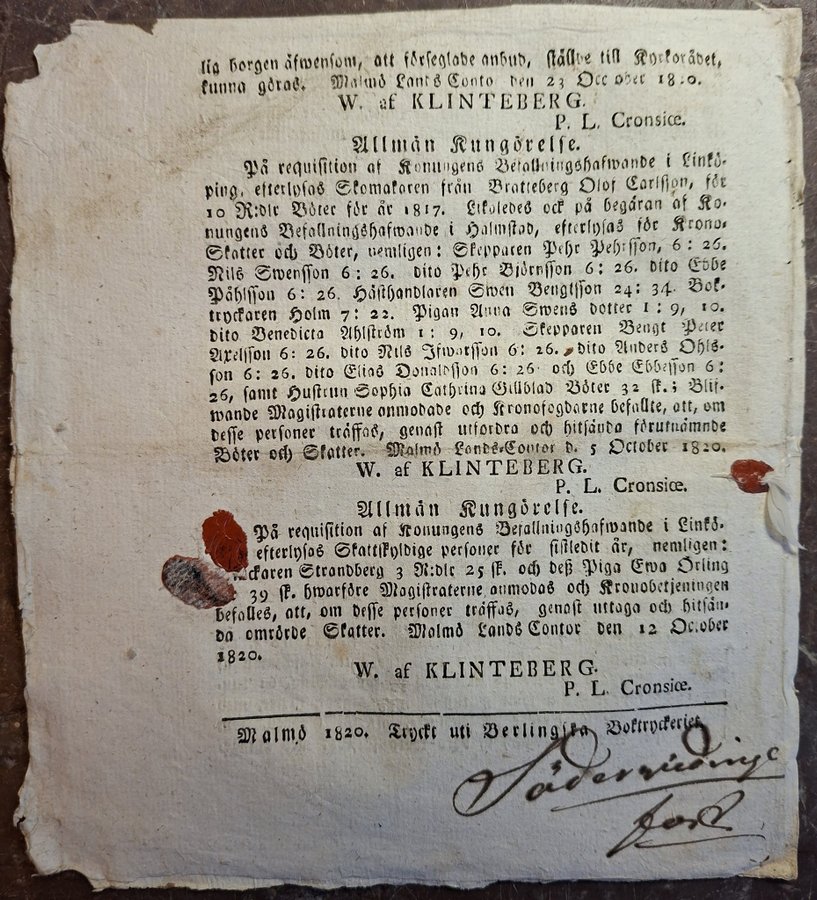 lig borgen äfwensom, att förseglade anbud, ställde till Kyrkorådet,
kunna göras. Malmö Lands Conto den 23 October 1820.
W. af KLINTEBERG.
P. L. Cronsiœ.
Allmän Kungörelse.
På requisition af Konungens Befallningshafwande i Linkö-
ping, efterlysas Skomakaren från Bratteberg Olof Carlsson, för
10 R:dlr Böter för år 1817. Likaledes ock på begäran af Ko-
nungens Befallningshafwande i Halmstad, efterlysas för Krono-
Skatter och Böter, nemligen: Skepparen Pehr Pehrsson, 6: 26.
Nils Swensson 6: 26. dito Pehr Björnsson 6: 26. dito Ebbe
Påhlsson 6: 26. Hästhandlaren Swen Bengtsson 24: 34. Bok-
tryckaren Holm 7: 22. Pigan Anna Swens dotter 1: 9, 10.
dito Benedicta Ahlström 1: 9, 10. Skepparen Bengt Peter
Axelsson 6: 26. dito Nils Ifwarsson 6: 26. dito Anders Ohls-
son 6: 26. dito Elias Donaldsson 6: 26 och Ebbe Ebbesson 6:
26, samt Hustrun Sophia Cathrina Gillblad Böter 32 sk.; Blif-
wande Magistraterne anmodade och Kronofogdarne befallte, att, om
desse personer träffas, genast utfordra och hitsända förutnämnde
Böter och Skatter. Malmö Lands-Contor d. 5 October 1820.
W. af KLINTEBERG.
P. L. Cronsiœ.
Allmän Kungörelse.
På requisition af Konungens Befallningshafwande i Linkö-
efterlysas Skattskyldige personer för sistledit år, nemligen:
ckaren Strandberg 3 R:dlr 25 sk. och deß Piga Ewa Örling
39 sk. hwarföre Magistraterne anmodas och Kronobetjeningen
befalles, att, om desse personer träffas, genast uttaga och hitsän-
da omrörde Skatter. Malmö Lands Contor den 12 October
1820.
W. af KLINTEBERG.
P. L. Cronsiœ.
Malmö 1820. Tryckt uti Berlingska Boktryckeriet.